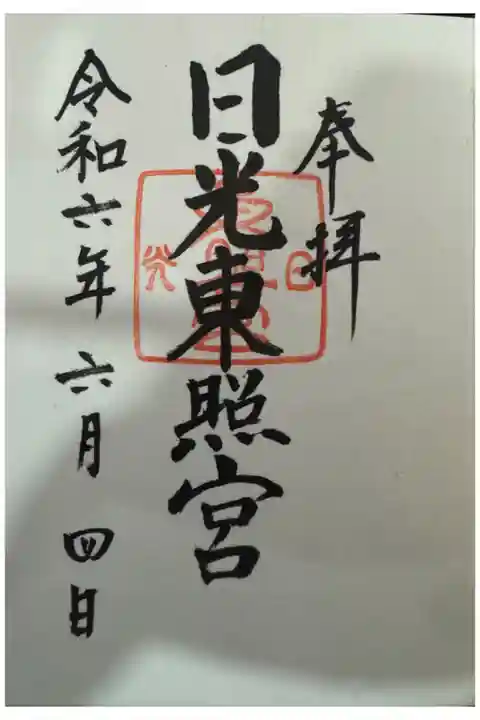 奉拝
日光東照宮
令和六年 六月 四日